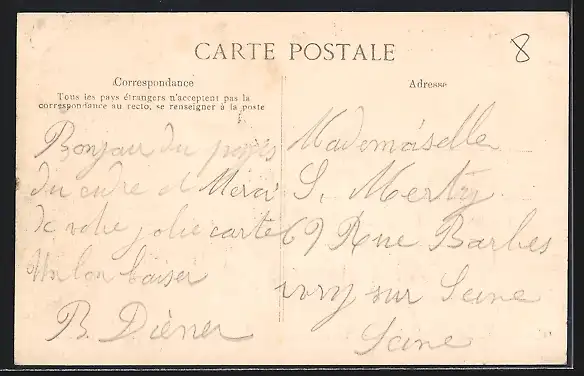 CARTE POSTALE
8
Correspondance
Tous les pays étrangers n'acceptent pas la
correspondance au recto, se renseigner à la poste
Bonjour du pays
du cidre et Merci
de votre jolie carte
Un bon baiser
B. Diener
Adresse
Mademoiselle
S. Merty
69 Rue Barbes
ivry sur Seine
Seine